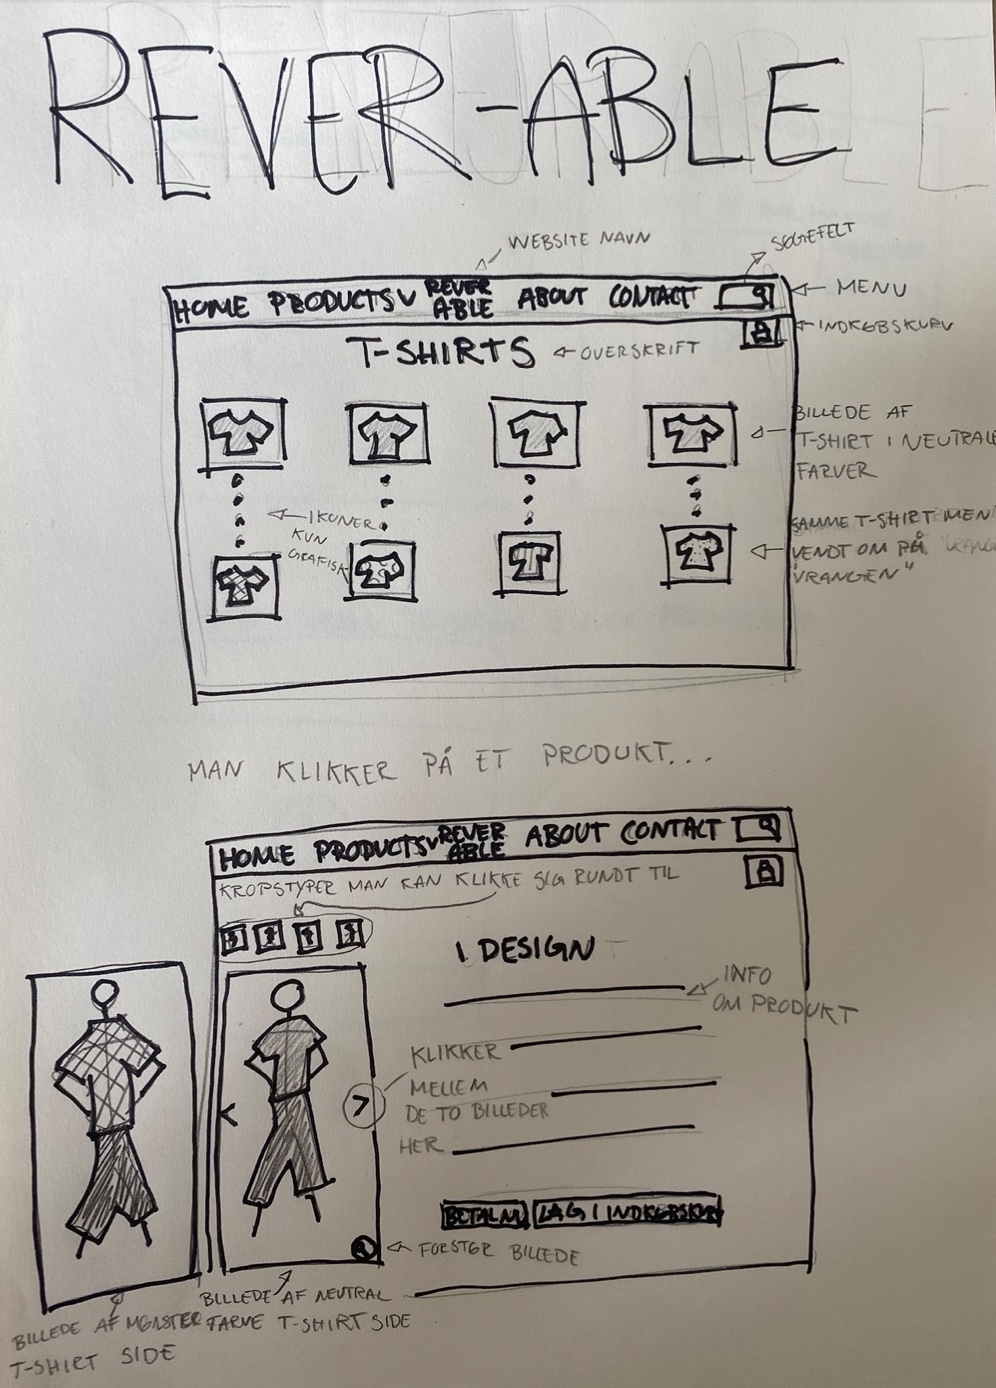 REVER-ABLE
WEBSITE NAVN
SØGEFELT
HOME PRODUCTS REVER ABLE ABOUT CONTACT
MENU
INDKØBSKURV
T-SHIRTS
OVERSKRIFT
BILLEDE AF
T-SHIRT I NEUTRALE
FARVER
IKONER
KUN
GRAFISK
SAMME T-SHIRT MEN
VENDT OM PÅ
"VRANGEN"
MAN KLIKKER PÅ ET PRODUKT...
HOME PRODUCTS REVER ABLE ABOUT CONTACT
KROPSTYPER MAN KAN KLIKKE SIG RUNDT TIL
1. DESIGN
INFO
OM PRODUKT
KLIKKER
MELLEM
DE TO BILLEDER
HER
BETAL NU
LÆG I INDKØBSKURV
FORSTØR BILLEDE
BILLEDE AF NEUTRAL
FARVE T-SHIRT SIDE
BILLEDE AF MØNSTER
T-SHIRT SIDE